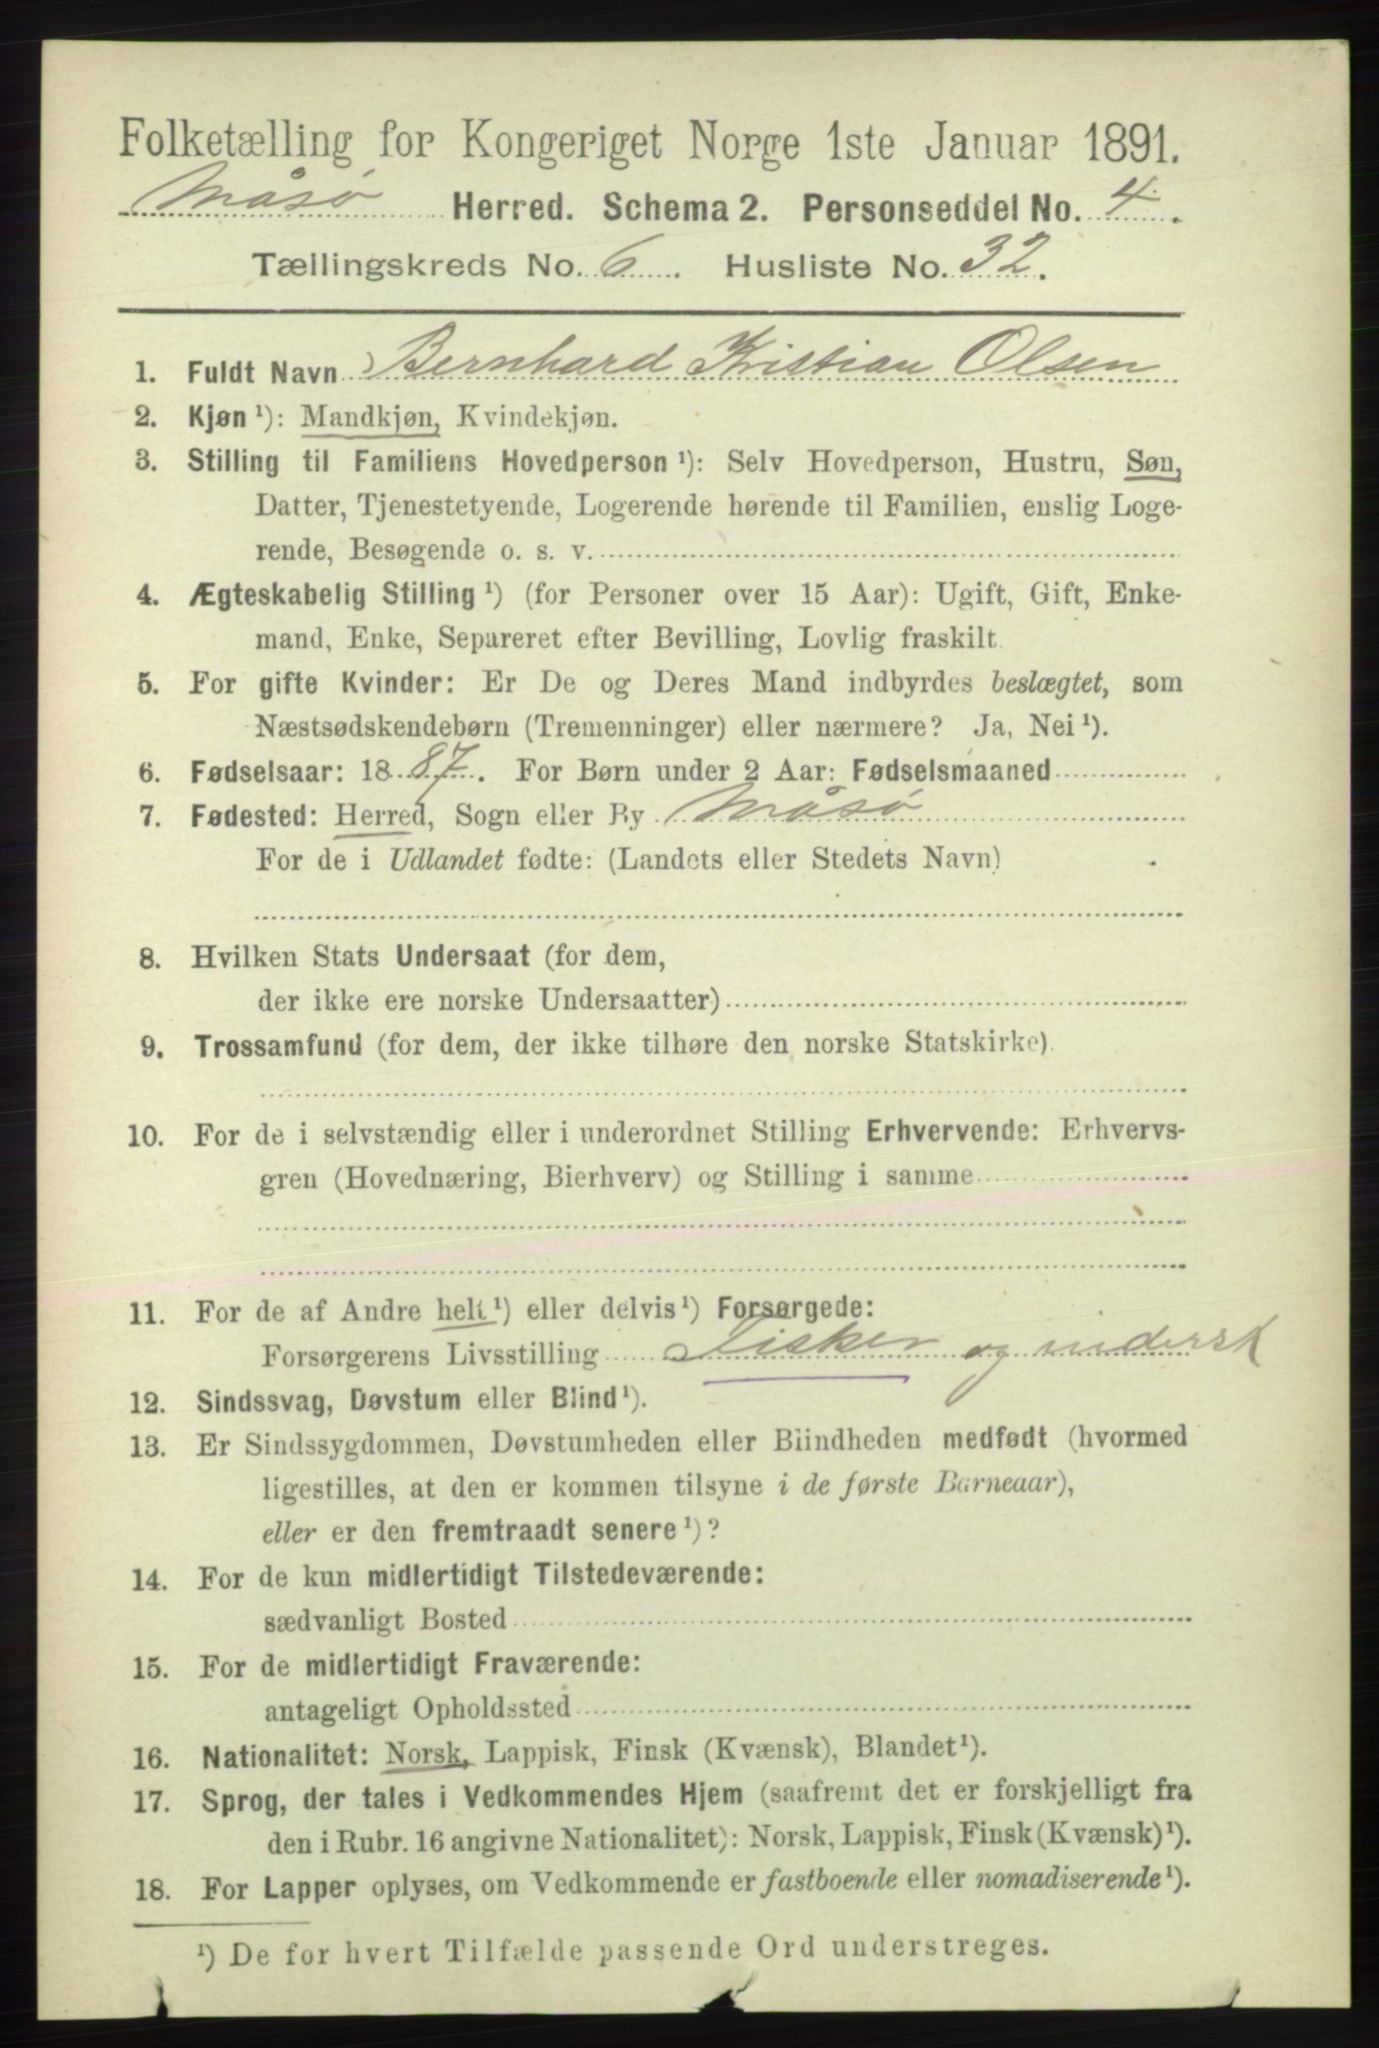 Folketælling for Kongeriget Norge 1ste Januar 1891.
Måsø Herred. Schema 2. Personseddel No. 4.
Tællingskreds No. 6. Husliste No. 32.
1. Fuldt Navn Bernhard Kristian Olsen
2. Kjøn ¹): Mandkjøn, Kvindekjøn.
3. Stilling til Familiens Hovedperson ¹): Selv Hovedperson, Hustru, Søn,
Datter, Tjenestetyende, Logerende hørende til Familien, enslig Loge-
rende, Besøgende o. s. v.
4. Ægteskabelig Stilling ¹) (for Personer over 15 Aar): Ugift, Gift, Enke-
mand, Enke, Separeret efter Bevilling, Lovlig fraskilt.
5. For gifte Kvinder: Er De og Deres Mand indbyrdes beslægtet, som
Næstsødskendebørn (Tremenninger) eller nærmere? Ja, Nei ¹).
6. Fødselsaar: 1887. For Børn under 2 Aar: Fødselsmaaned
7. Fødested: Herred, Sogn eller By Måsø
For de i Udlandet fødte: (Landets eller Stedets Navn)
8. Hvilken Stats Undersaat (for dem,
der ikke ere norske Undersaatter)
9. Trossamfund (for dem, der ikke tilhøre den norske Statskirke).
10. For de i selvstændig eller i underordnet Stilling Erhvervende: Erhvervs-
gren (Hovednæring, Bierhverv) og Stilling i samme
11. For de af Andre helt ¹) eller delvis ¹) Forsørgede:
Forsørgerens Livsstilling Fisker og
12. Sindssvag, Døvstum eller Blind ¹).
13. Er Sindssygdommen, Døvstumheden eller Blindheden medfødt (hvormed
ligestilles, at den er kommen tilsyne i de første Barneaar),
eller er den fremtraadt senere ¹)?
14. For de kun midlertidigt Tilstedeværende:
sædvanligt Bosted
15. For de midlertidigt Fraværende:
antageligt Opholdssted
16. Nationalitet: Norsk, Lappisk, Finsk (Kvænsk), Blandet ¹).
17. Sprog, der tales i Vedkommendes Hjem (saafremt det er forskjelligt fra
den i Rubr. 16 angivne Nationalitet): Norsk, Lappisk, Finsk (Kvænsk) ¹).
18. For Lapper oplyses, om Vedkommende er fastboende eller nomadiserende ¹).
¹) De for hvert Tilfælde passende Ord understreges.